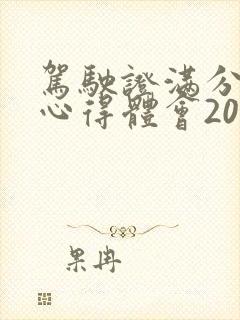 駕駛證滿分
心得體會20
果冉